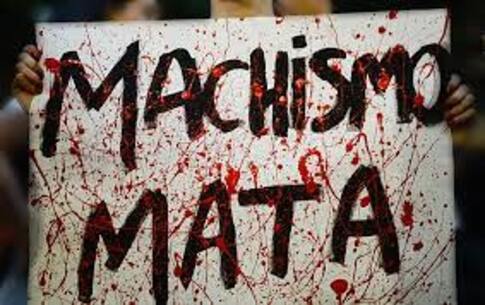 MACHiSMO
MATA